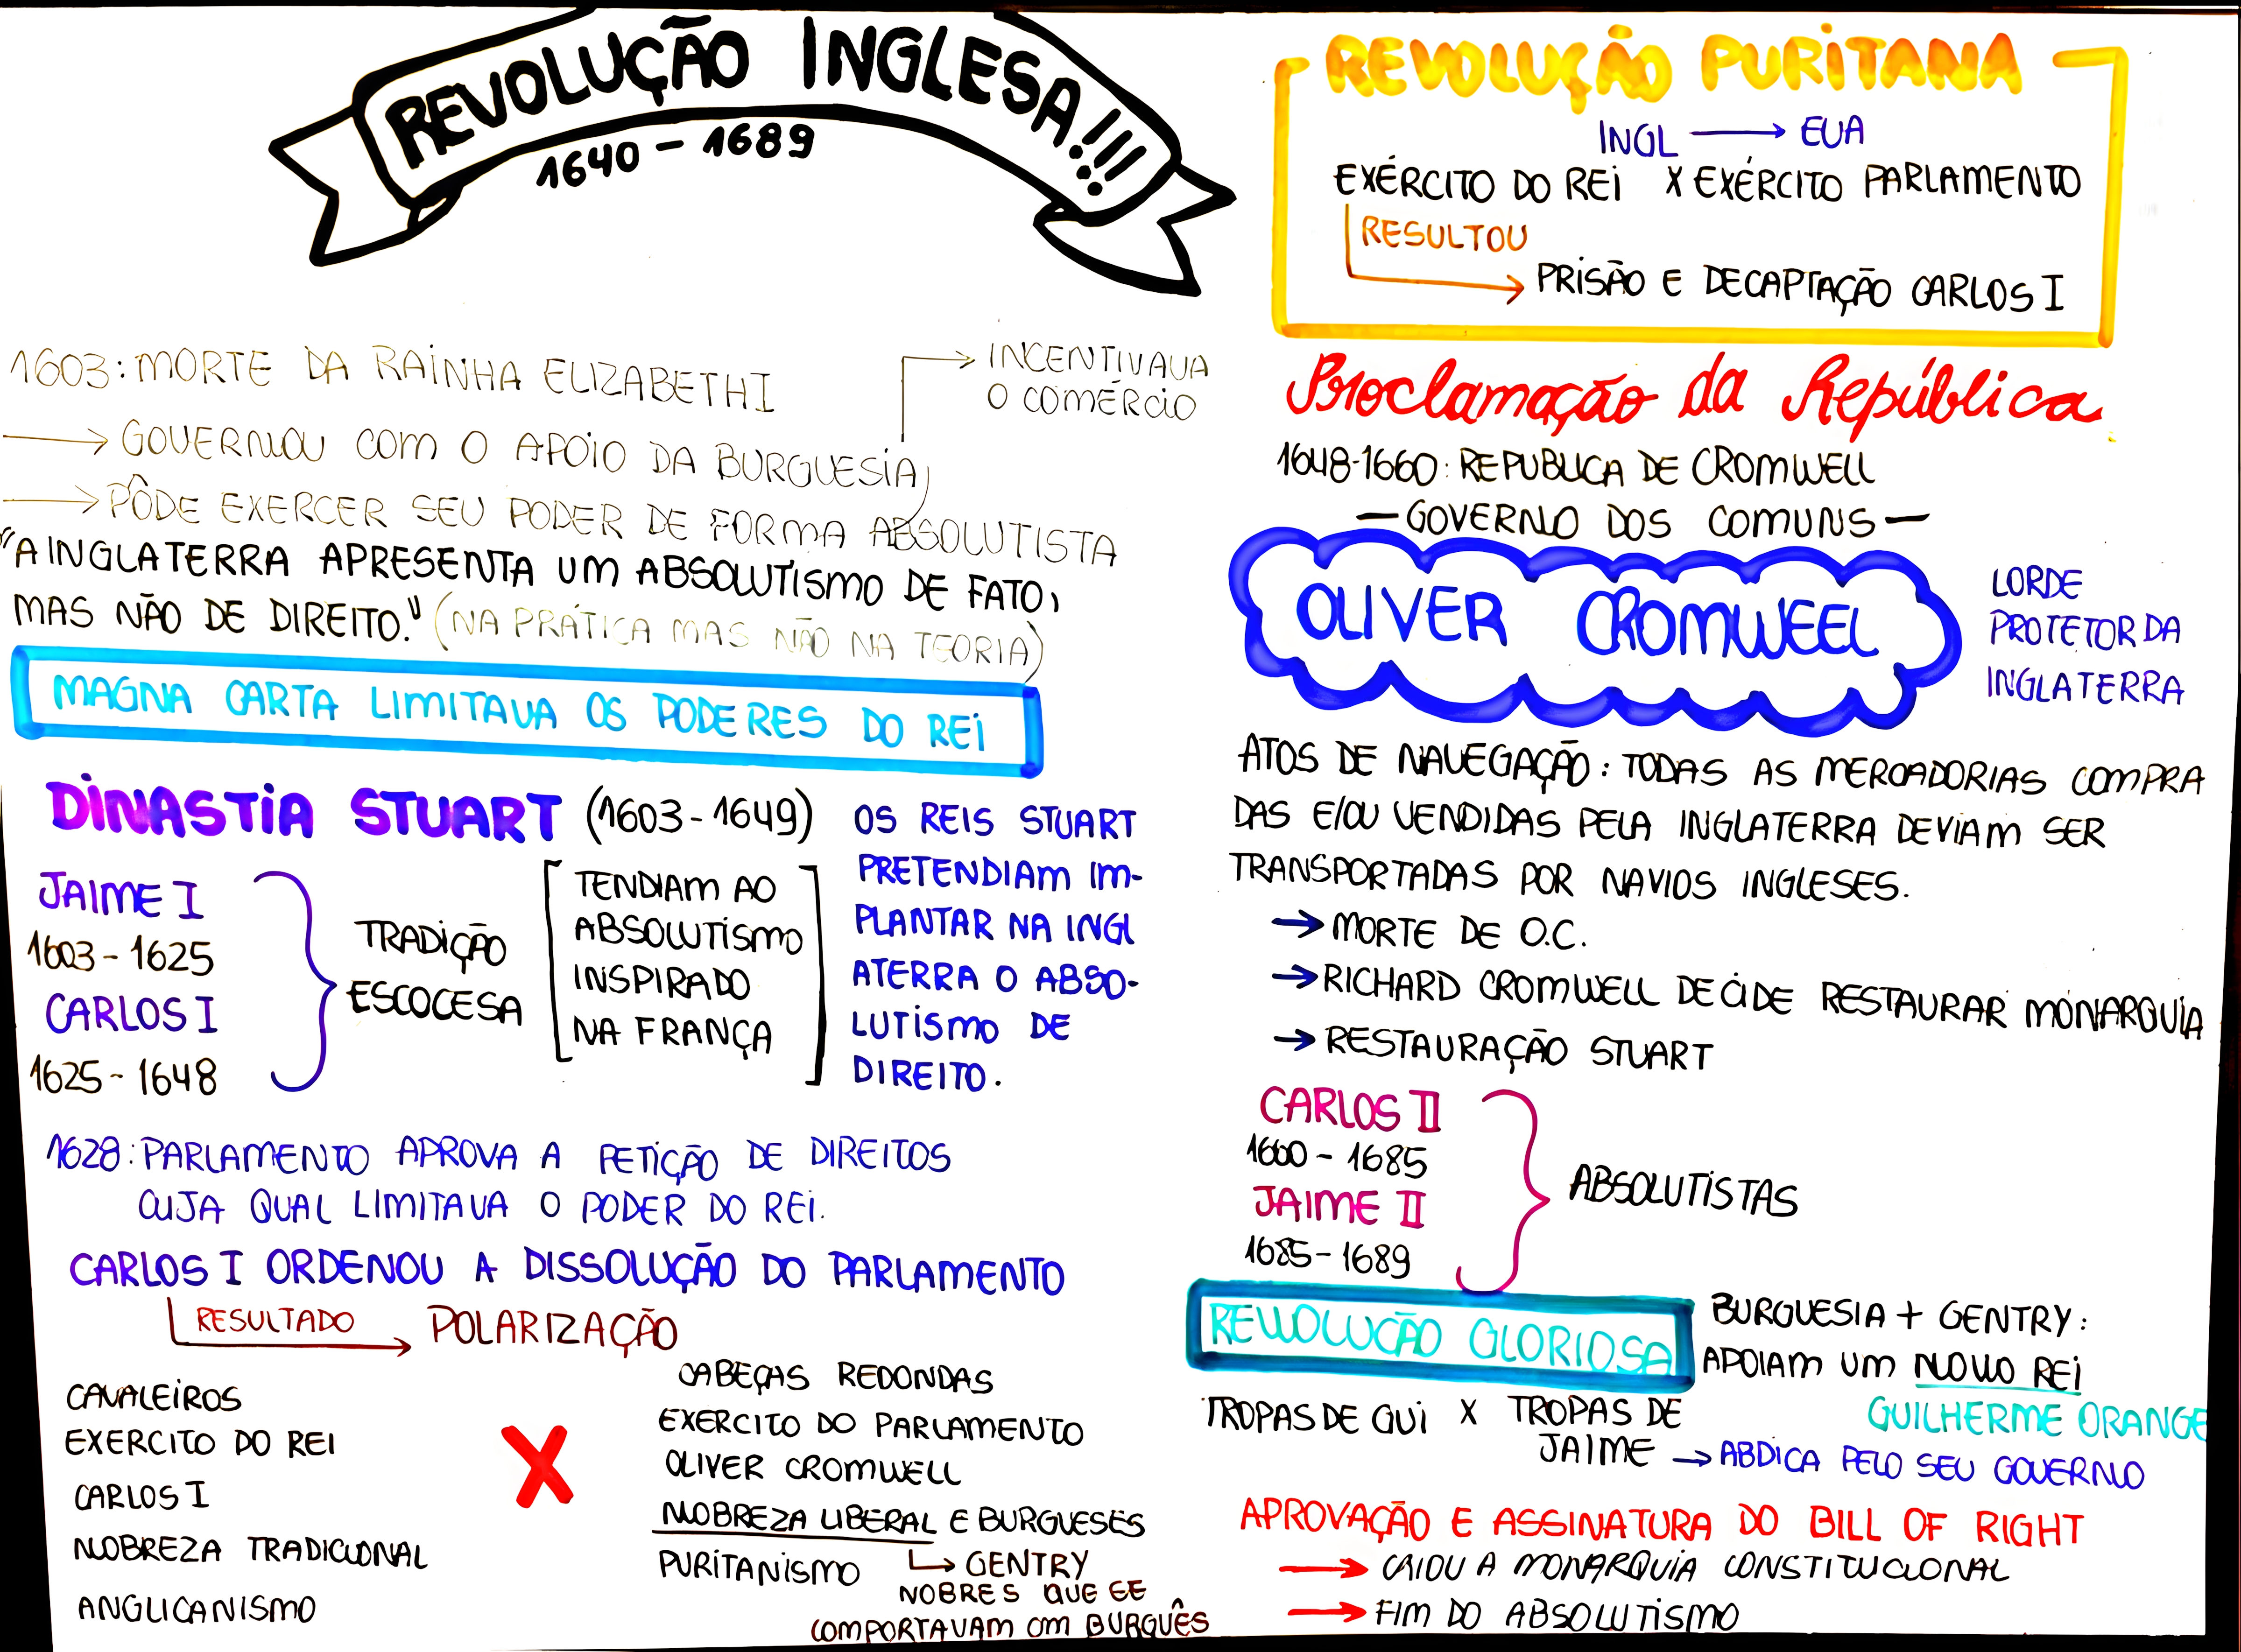 REVOLUÇÃO INGLESA!!!
1640 - 1689
1603: MORTE DA RAINHA ELIZABETH I
→ GOVERNOU COM O APOIO DA BURGUESIA
→ INCENTIVAVA
O COMÉRCIO
→ PÔDE EXERCER SEU PODER DE FORMA ABSOLUTISTA
"A INGLATERRA APRESENTA UM ABSOLUTISMO DE FATO,
MAS NÃO DE DIREITO." (NA PRÁTICA MAS NÃO NA TEORIA)
MAGNA CARTA LIMITAVA OS PODERES DO REI
DINASTIA STUART (1603 - 1649)
JAIME I
1603 - 1625
CARLOS I
1625 - 1648
TRADIÇÃO
ESCOCESA
TENDIAM AO
ABSOLUTISMO
INSPIRADO
NA FRANÇA
OS REIS STUART
PRETENDIAM IM-
PLANTAR NA INGL
ATERRA O ABSO-
LUTISMO DE
DIREITO.
1628: PARLAMENTO APROVA A PETIÇÃO DE DIREITOS
CUJA QUAL LIMITAVA O PODER DO REI.
CARLOS I ORDENOU A DISSOLUÇÃO DO PARLAMENTO
RESULTADO → POLARIZAÇÃO
CAVALEIROS
EXERCITO DO REI
CARLOS I
NOBREZA TRADICIONAL
ANGLICANISMO
X
CABEÇAS REDONDAS
EXERCITO DO PARLAMENTO
OLIVER CROMWELL
NOBREZA LIBERAL E BURGUESES
PURITANISMO
↳ GENTRY
NOBRES QUE SE
COMPORTAVAM COM BURGUÊS
REVOLUÇÃO PURITANA
INGL → EUA
EXÉRCITO DO REI X EXÉRCITO PARLAMENTO
RESULTOU
→ PRISÃO E DECAPTAÇÃO CARLOS I
Proclamação da República
1648-1660: REPUBLICA DE CROMWELL
— GOVERNO DOS COMUNS —
OLIVER CROMWEEL
LORDE
PROTETOR DA
INGLATERRA
ATOS DE NAVEGAÇÃO: TODAS AS MERCADORIAS COMPRA
DAS E/OU VENDIDAS PELA INGLATERRA DEVIAM SER
TRANSPORTADAS POR NAVIOS INGLESES.
→ MORTE DE O.C.
→ RICHARD CROMWELL DECIDE RESTAURAR MONARQUIA
→ RESTAURAÇÃO STUART
CARLOS II
1660 - 1685
JAIME II
1685 - 1689
ABSOLUTISTAS
REVOLUÇÃO GLORIOSA
BURGUESIA + GENTRY:
APOIAM UM NOVO REI
GUILHERME ORANGE
TROPAS DE GUI X TROPAS DE
JAIME → ABDICA PELO SEU GOVERNO
APROVAÇÃO E ASSINATURA DO BILL OF RIGHT
→ CRIOU A MONARQUIA CONSTITUCIONAL
→ FIM DO ABSOLUTISMO